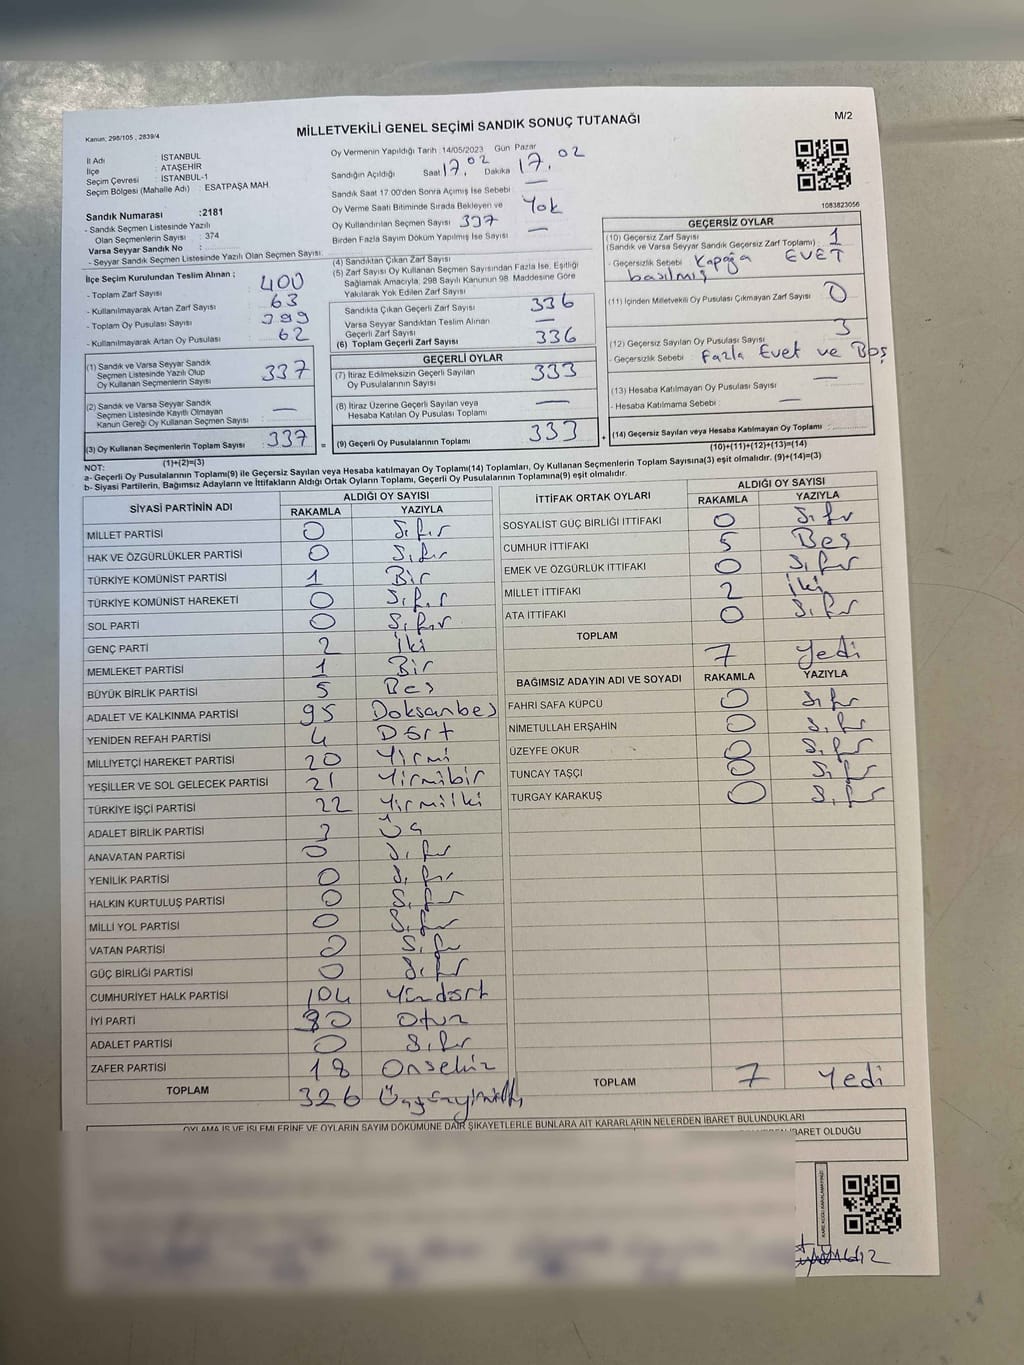 Kanun, 298/105 , 2839/4
MİLLETVEKİLİ GENEL SEÇİMİ SANDIK SONUÇ TUTANAĞI
M/2
İl Adı : İSTANBUL
İlçe : ATAŞEHİR
Seçim Çevresi : İSTANBUL-1
Seçim Bölgesi (Mahalle Adı) : ESATPAŞA MAH
Sandık Numarası :2181
- Sandık Seçmen Listesinde Yazılı
Olan Seçmenlerin Sayısı : 374
Varsa Seyyar Sandık No :
- Seyyar Sandık Seçmen Listesinde Yazılı Olan Seçmen Sayısı:
Oy Vermenin Yapıldığı Tarih :14/05/2023 Gün Pazar
Sandığın Açıldığı Saat 17.02 Dakika 17.02
Sandık Saat 17.00'den Sonra Açımış İse Sebebi : —
Oy Verme Saati Bitiminde Sırada Bekleyen ve Yok
Oy Kullandırılan Seçmen Sayısı 337
Birden Fazla Sayım Döküm Yapılmış İse Sayısı : —
1083823056
İlçe Seçim Kurulundan Teslim Alınan ;
- Toplam Zarf Sayısı : 400
- Kullanılmayarak Artan Zarf Sayısı : 63
- Toplam Oy Pusulası Sayısı : 399
- Kullanılmayarak Artan Oy Pusulası : 62
(1) Sandık ve Varsa Seyyar Sandık
Seçmen Listesinde Yazılı Olup
Oy Kullanan Seçmenlerin Sayısı : 337
(2) Sandık ve Varsa Seyyar Sandık
Seçmen Listesinde Kayıtlı Olmayan
Kanun Gereği Oy Kullanan Seçmen Sayısı : —
(3) Oy Kullanan Seçmenlerin Toplam Sayısı : 337 =
(1)+(2)=(3)
(4) Sandıktan Çıkan Zarf Sayısı
(5) Zarf Sayısı Oy Kullanan Seçmen Sayısından Fazla İse, Eşitliği
Sağlamak Amacıyla, 298 Sayılı Kanunun 98. Maddesine Göre
Yakılarak Yok Edilen Zarf Sayısı
Sandıkta Çıkan Geçerli Zarf Sayısı : 336
Varsa Seyyar Sandıktan Teslim Alınan
Geçerli Zarf Sayısı : —
(6) Toplam Geçerli Zarf Sayısı : 336
GEÇERLİ OYLAR
(7) İtiraz Edilmeksizin Geçerli Sayılan
Oy Pusulalarının Sayısı : 333
(8) İtiraz Üzerine Geçerli Sayılan veya
Hesaba Katılan Oy Pusulası Toplamı : —
(9) Geçerli Oy Pusulalarının Toplamı : 333 +
GEÇERSİZ OYLAR
(10) Geçersiz Zarf Sayısı : 1
(Sandık ve Varsa Seyyar Sandık Geçersiz Zarf Toplamı)
- Geçersizlik Sebebi : Kapağa EVET
basılmış
(11) İçinden Milletvekili Oy Pusulası Çıkmayan Zarf Sayısı : 0
(12) Geçersiz Sayılan Oy Pusulası Sayısı : 3
- Geçersizlik Sebebi : Fazla Evet ve Boş
(13) Hesaba Katılmayan Oy Pusulası Sayısı : —
- Hesaba Katılmama Sebebi : —
(14) Geçersiz Sayılan veya Hesaba Katılmayan Oy Toplamı :
(10)+(11)+(12)+(13)=(14)
NOT:
a- Geçerli Oy Pusulalarının Toplamı(9) ile Geçersiz Sayılan veya Hesaba katılmayan Oy Toplamı(14) Toplamları, Oy Kullanan Seçmenlerin Toplam Sayısına(3) eşit olmalıdır. (9)+(14)=(3)
b- Siyasi Partilerin, Bağımsız Adayların ve İttifakların Aldığı Ortak Oyların Toplamı, Geçerli Oy Pusulalarının Toplamına(9) eşit olmalıdır.
SİYASİ PARTİNİN ADI ALDIĞI OY SAYISI
RAKAMLA YAZIYLA
MİLLET PARTİSİ 0 Sıfır
HAK VE ÖZGÜRLÜKLER PARTİSİ 0 Sıfır
TÜRKİYE KOMÜNİST PARTİSİ 1 Bir
TÜRKİYE KOMÜNİST HAREKETİ 0 Sıfır
SOL PARTİ 0 Sıfır
GENÇ PARTİ 2 İki
MEMLEKET PARTİSİ 1 Bir
BÜYÜK BİRLİK PARTİSİ 5 Beş
ADALET VE KALKINMA PARTİSİ 95 Doksanbeş
YENİDEN REFAH PARTİSİ 4 Dört
MİLLİYETÇİ HAREKET PARTİSİ 20 Yirmi
YEŞİLLER VE SOL GELECEK PARTİSİ 21 Yirmibir
TÜRKİYE İŞÇİ PARTİSİ 22 Yirmiiki
ADALET BİRLİK PARTİSİ 3 Üç
ANAVATAN PARTİSİ 0 Sıfır
YENİLİK PARTİSİ 0 Sıfır
HALKIN KURTULUŞ PARTİSİ 0 Sıfır
MİLLİ YOL PARTİSİ 0 Sıfır
VATAN PARTİSİ 0 Sıfır
GÜÇ BİRLİĞİ PARTİSİ 0 Sıfır
CUMHURİYET HALK PARTİSİ 104 Yüzdört
İYİ PARTİ 30 Otuz
ADALET PARTİSİ 0 Sıfır
ZAFER PARTİSİ 18 Onsekiz
TOPLAM 326 Üçyüzyirmialtı
İTTİFAK ORTAK OYLARI ALDIĞI OY SAYISI
RAKAMLA YAZIYLA
SOSYALİST GÜÇ BİRLİĞİ İTTİFAKI 0 Sıfır
CUMHUR İTTİFAKI 5 Beş
EMEK VE ÖZGÜRLÜK İTTİFAKI 0 Sıfır
MİLLET İTTİFAKI 2 İki
ATA İTTİFAKI 0 Sıfır
TOPLAM 7 Yedi
BAĞIMSIZ ADAYIN ADI VE SOYADI RAKAMLA YAZIYLA
FAHRİ SAFA KÜPCÜ 0 Sıfır
NİMETULLAH ERŞAHİN 0 Sıfır
ÜZEYFE OKUR 0 Sıfır
TUNCAY TAŞÇI 0 Sıfır
TURGAY KARAKUŞ 0 Sıfır
TOPLAM 7 Yedi
OYLAMA İŞ VE İŞLEMLERİNE VE OYLARIN SAYIM DÖKÜMÜNE DAİR ŞİKAYETLERLE BUNLARA AİT KARARLARIN NELERDEN İBARET BULUNDUKLARI
İBARET OLDUĞU
KARE KODU KARALAMAYINIZ!